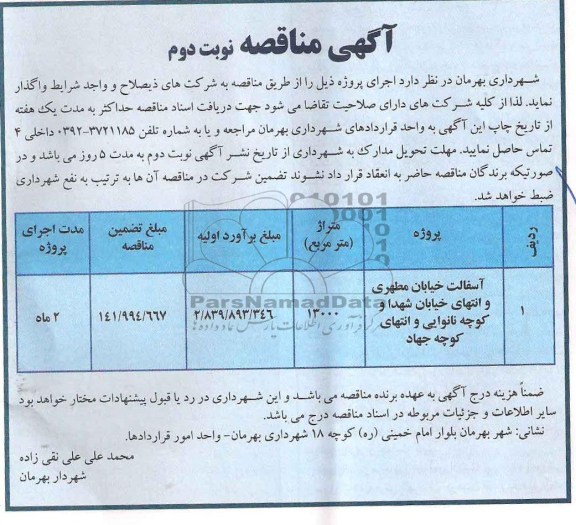 آگهی مناقصه نوبت دوم
شهرداری بهرمان در نظر دارد اجرای پروژه ذیل را از طریق مناقصه به شرکت های ذیصلاح و واجد شرایط واگذار
نماید. لذا از کلیه شرکت های دارای صلاحیت تقاضا می شود جهت دریافت اسناد مناقصه حداکثر به مدت یک هفته
از تاریخ چاپ این آگهی به واحد قراردادهای شهرداری بهرمان مراجعه و یا به شماره تلفن ۳۷۲۱۱۸۵-۰۳۹۲ داخلی ۴
تماس حاصل نمایید. مهلت تحویل مدارک به شهرداری از تاریخ نشر آگهی نوبت دوم به مدت ۵ روز می باشد و در
صورتیکه برندگان مناقصه حاضر به انعقاد قرار داد نشوند تضمین شرکت در مناقصه آن ها به ترتیب به نفع شهرداری
ضبط خواهد شد.
ردیف پروژه متراژ (متر مربع) مبلغ برآورد اولیه مبلغ تضمین مناقصه مدت اجرای پروژه
۱ آسفالت خیابان مطهری
و انتهای خیابان شهدا و
کوچه نانوایی و انتهای
کوچه جهاد
۱۳۰۰۰ ۲/۸۳۹/۸۹۳/۳۴۶ ۱۴۱/۹۹۴/۶۶۷ ۲ ماه
ParsNamadData
ضمناً هزینه درج آگهی به عهده برنده مناقصه می باشد و این شهرداری در رد یا قبول پیشنهادات مختار خواهد بود
سایر اطلاعات و جزئیات مربوطه در اسناد مناقصه درج می باشد.
نشانی: شهر بهرمان بلوار امام خمینی (ره) کوچه ۱۸ شهرداری بهرمان- واحد امور قراردادها.
محمد علی علی نقی زاده
شهردار بهرمان